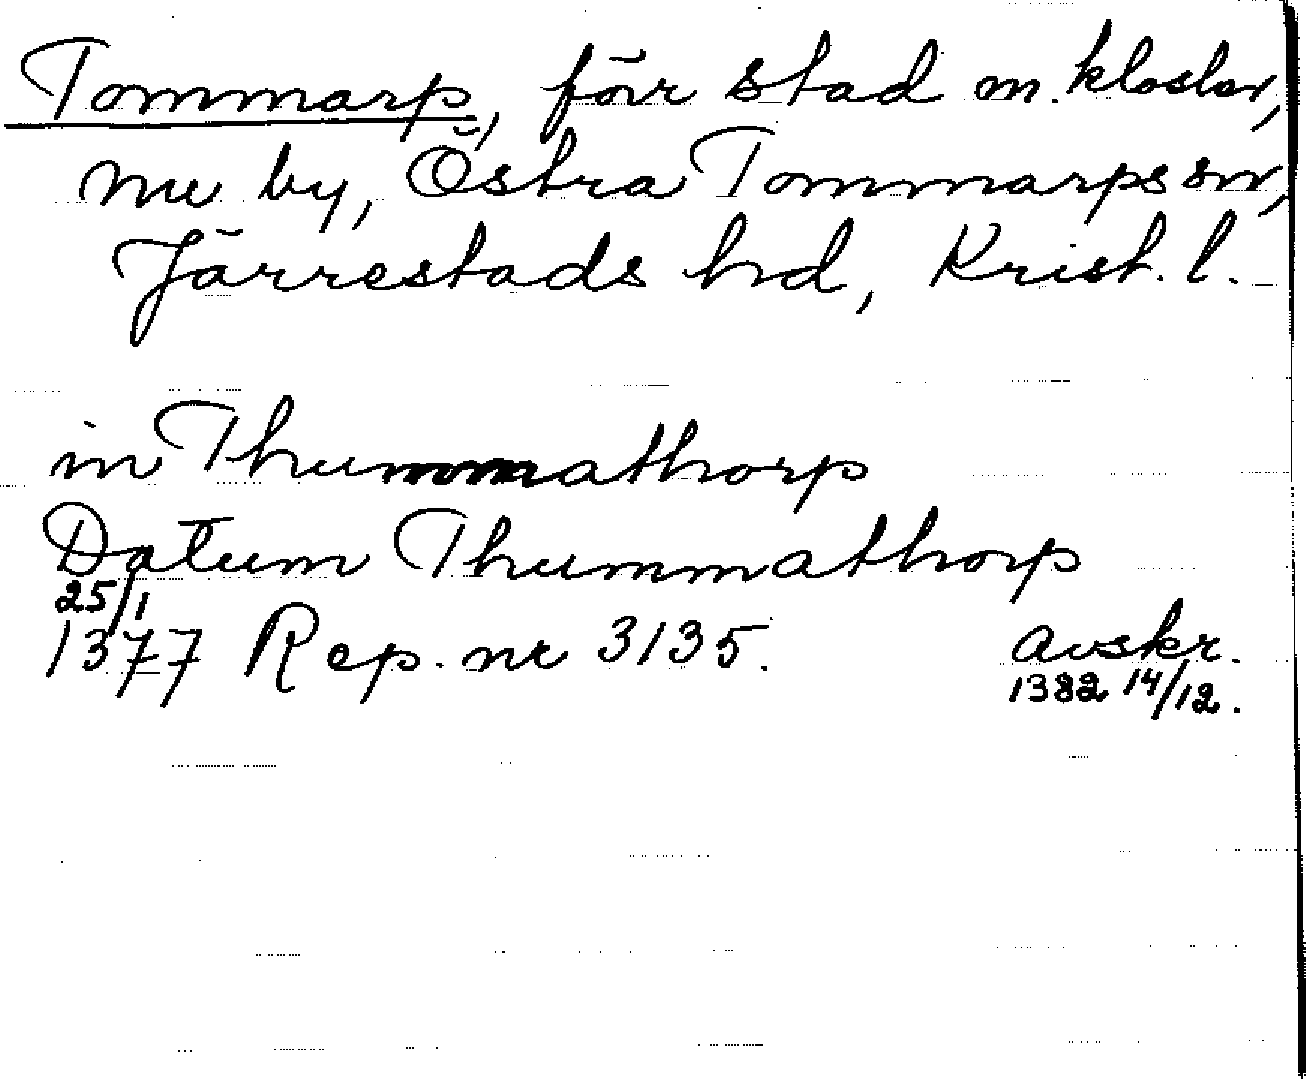 Tommarp, förr stad m. kloster,
nu by, Östra Tommarps sn,
Järrestads hd, Krist. l.
in Thummathorp
Datum Thummathorp
25/1
1377 Rep. nr 3135.
avskr.
1382 14/12.